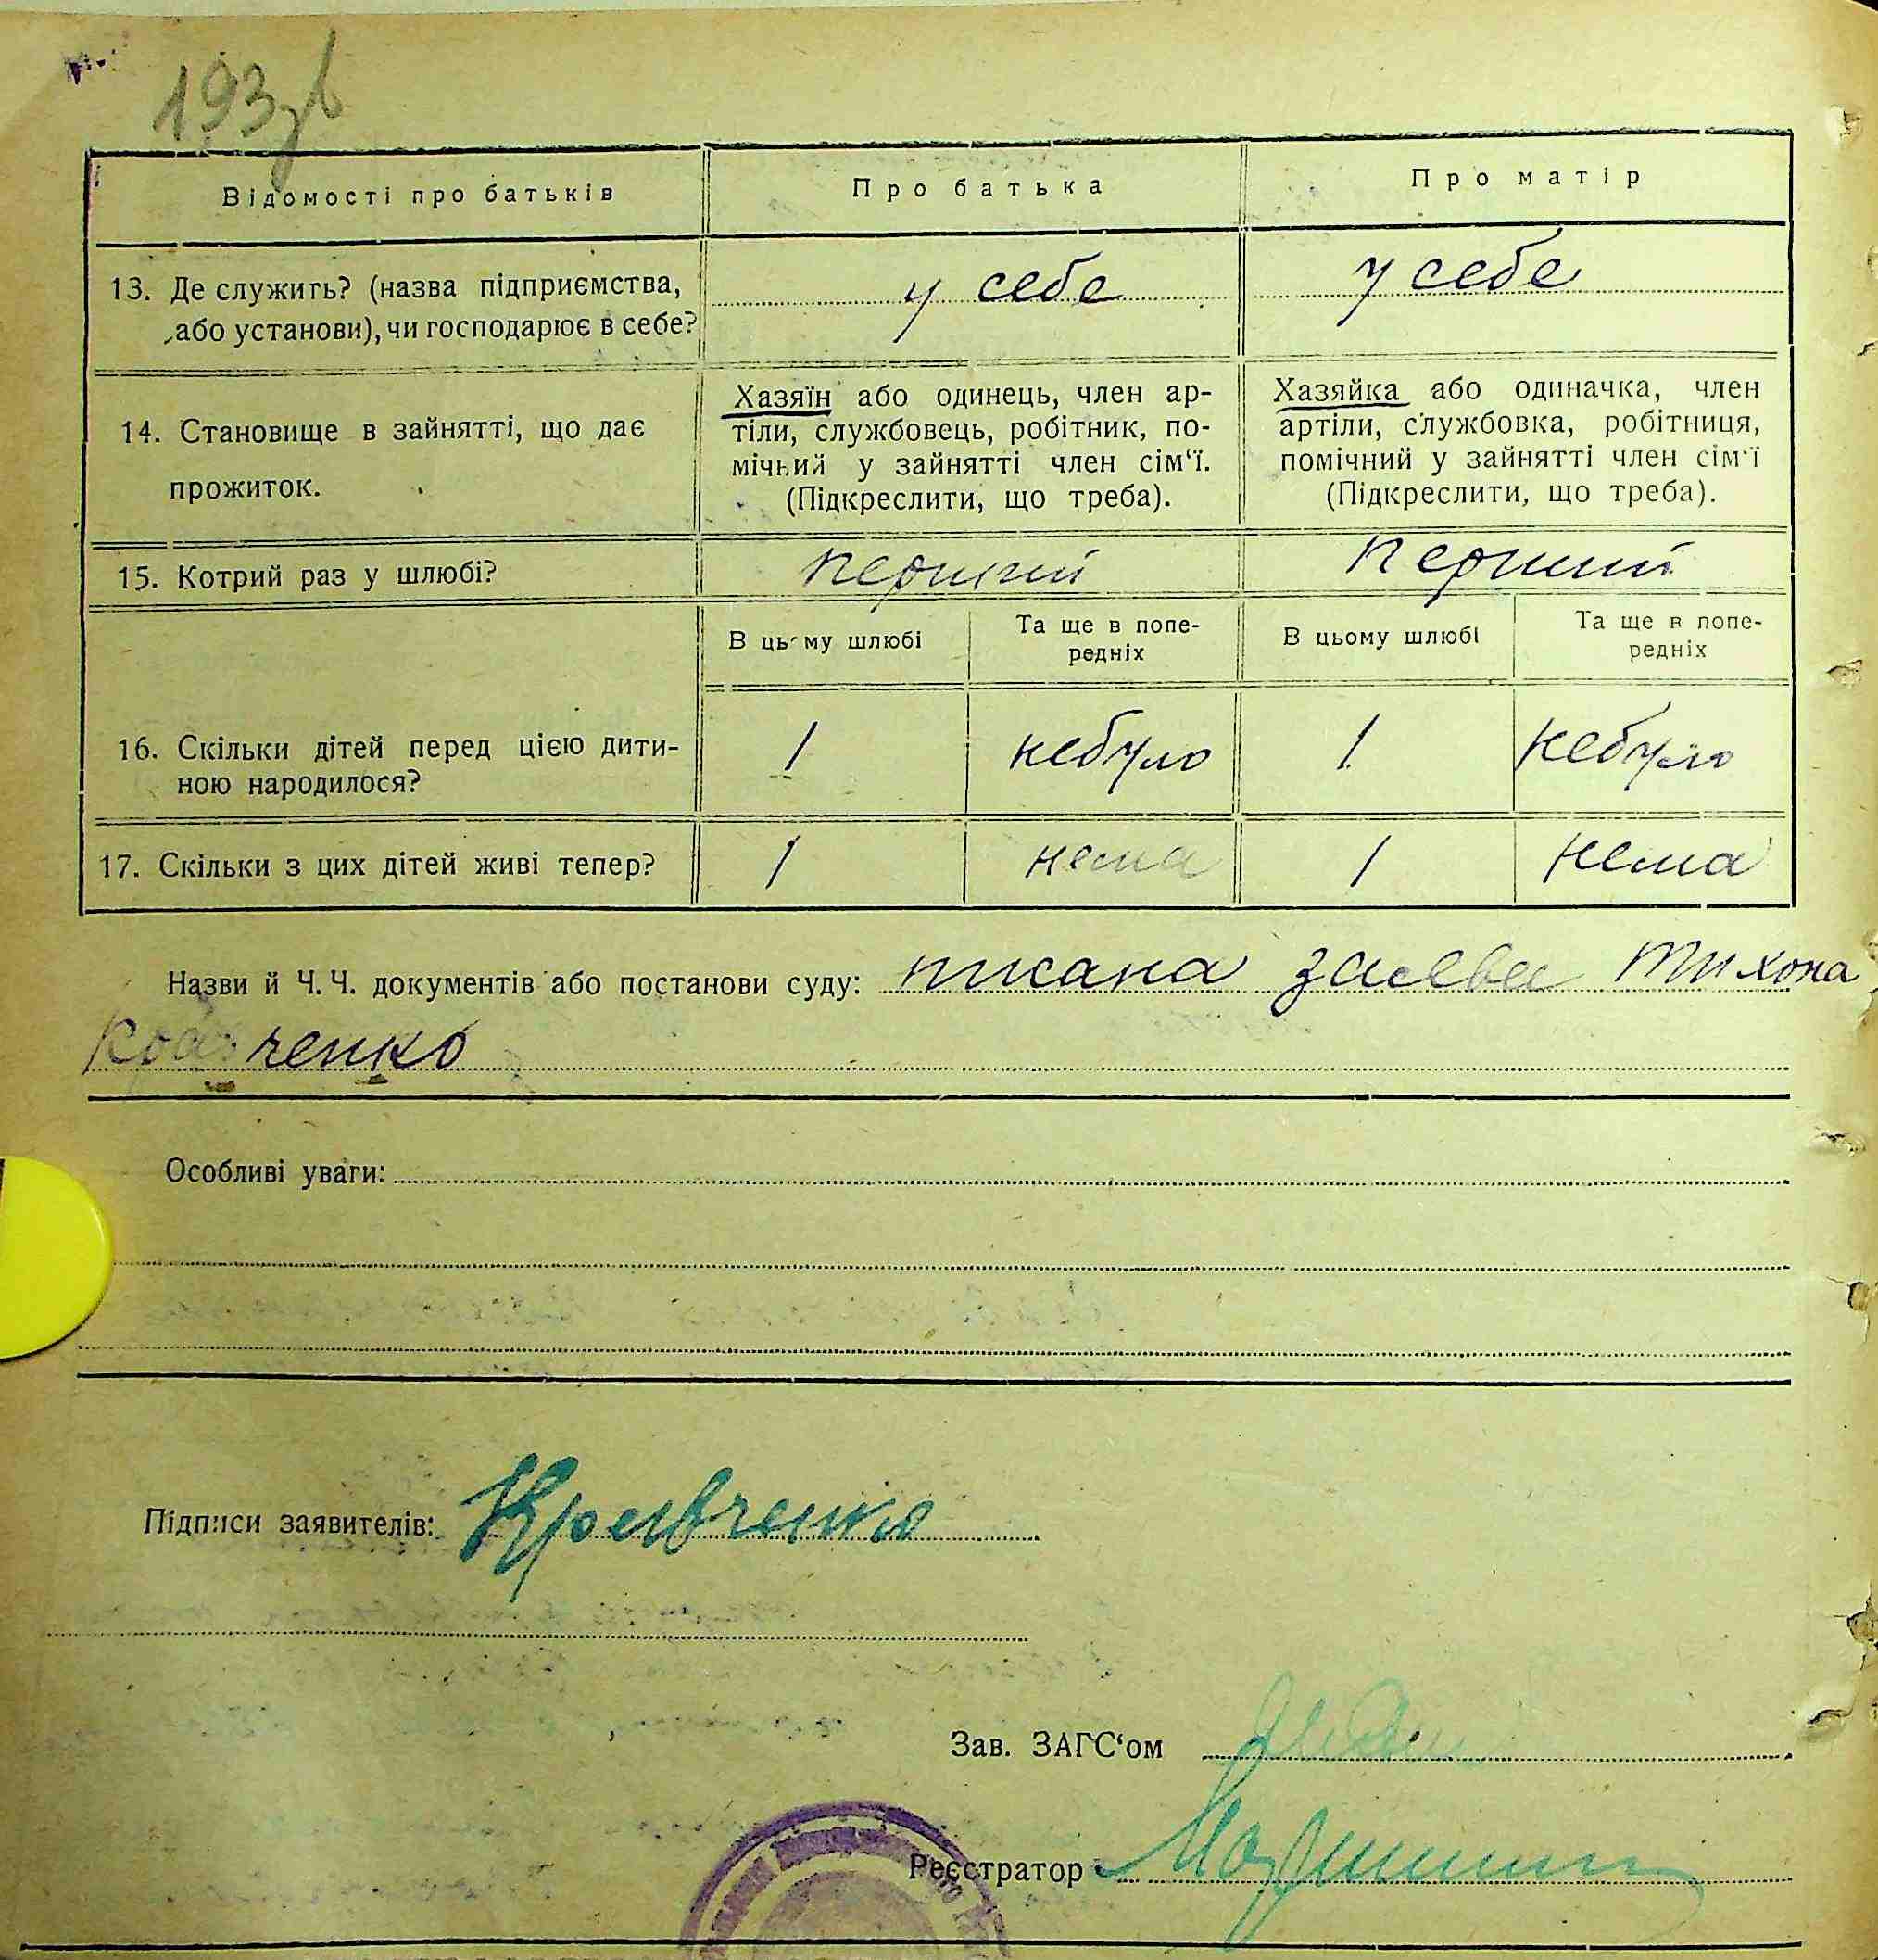 193зв
Відомості про батьків
Про батька
Про матір
13. Де служить? (назва підприємства,
або установи), чи господарює в себе?
у себе
у себе
14. Становище в зайнятті, що дає
прожиток.
Хазяїн або одинець, член ар-
тіли, службовець, робітник, по-
мічний у зайнятті член сім‘ї.
(Підкреслити, що треба).
Хазяйка або одиначка, член
артіли, службовка, робітниця,
помічний у зайнятті член сім‘ї
(Підкреслити, що треба).
15. Котрий раз у шлюбі?
перший
перший
В цьому шлюбі
Та ще в попе-
редніх
В цьому шлюбі
Та ще в попе-
редніх
16. Скільки дітей перед цією дити-
ною народилося?
1
небуло
1
небуло
17. Скільки з цих дітей живі тепер?
1
нема
1
нема
Назви й Ч.Ч. документів або постанови суду: писана заява Тихона
Кравченко
Особливі уваги:
Підписи заявителів: Кравченко
Зав. ЗАГС‘ом
Реєстратор